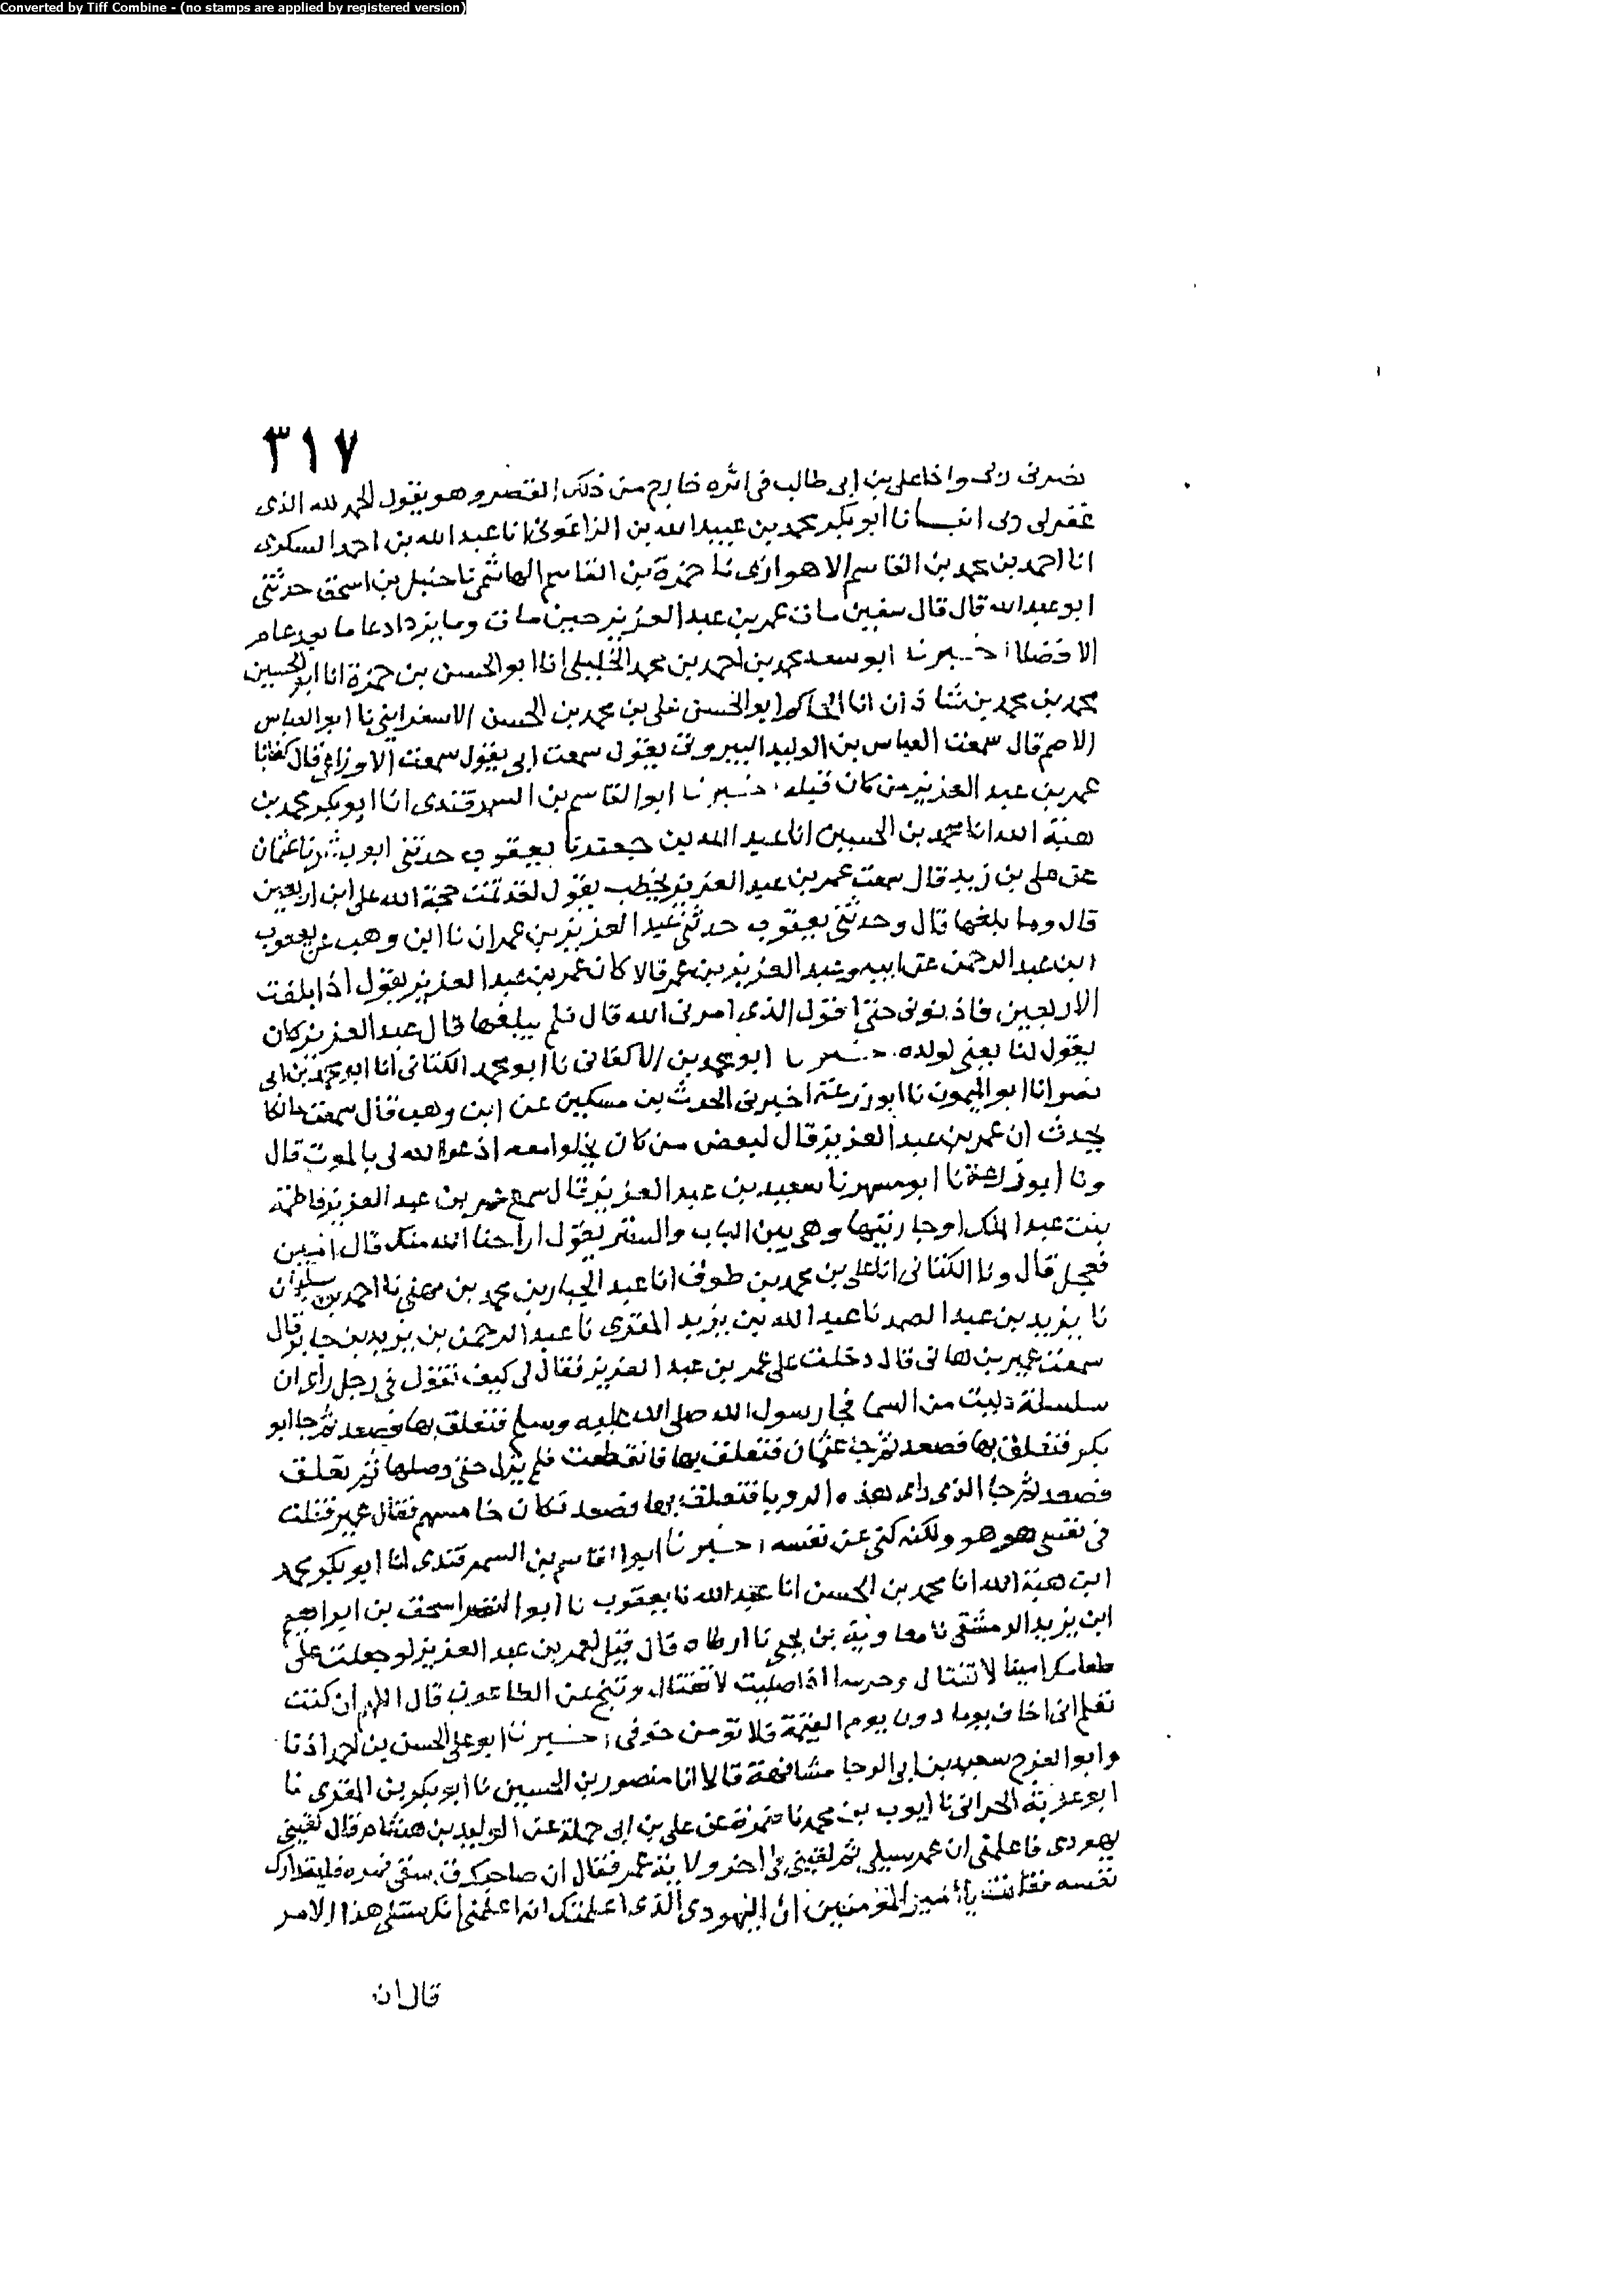 Converted by Tiff Combine - (no stamps are applied by registered version)
٣١٧
نصرنى ربى واذا على بن ابى طالب فى اثره خارج من ذلك القصر وهو يقول الحمد لله الذى
غفر لى ربى انبانا ابو بكر محمد بن عبيد الله بن الزاغونى انا عبد الله بن احمد السكرى
انا احمد بن محمد بن القاسم الاهوازى نا حمزة بن القاسم الهاشمى نا حنبل بن اسحق حدثنى
ابو عبد الله قال قال سفين مات عمر بن عبد العزيز حين مات وما يزداد عاما بعد عام
الا فضلا اخبرنا ابو سعد محمد بن احمد بن محمد الخليلى انا ابو الحسن بن حمزة انا ابو الحسين
محمد بن محمد بن شاذان انا الحاكم ابو الحسن على بن محمد بن الحسن الاسفراينى نا ابو العباس
الاصم قال سمعت العباس بن الوليد البيروتى يقول سمعت ابى يقول سمعت الاوزاعى قال كفانا
عمر بن عبد العزيز من كان قبله اخبرنا ابو القاسم بن السمرقندى انا ابو بكر محمد بن
هبة الله انا محمد بن الحسين انا عبد الله بن جعفر نا يعقوب حدثنى ابو بشر نا عثمان
عن على بن زيد قال سمعت عمر بن عبد العزيز يخطب يقول لقد تمت حجة الله على ابن اربعين
قال وما بلغها قال وحدثنى يعقوب حدثنى عبد العزيز بن عمران نا ابن وهب عن يعقوب
ابن عبد الرحمن عن ابيه وعبد العزيز بن عمر قالا كان عمر بن عبد العزيز يقول اذا بلغت
الاربعين فاذنونى حتى اقول الذى امرنى الله قال فلم يبلغها قال عبد العزيز كان
يقول لنا يعنى لولده اخبرنا ابو محمد بن الاكفانى نا ابو محمد الكتانى انا ابو محمد بن ابى
نصر انا ابو الميمون نا ابو زرعة اخبرنى الحرث بن مسكين عن ابن وهب قال سمعت مالكا
يحدث ان عمر بن عبد العزيز قال لبعض من كان يخلوا معه ادعوا الله لى بالموت قال
ونا ابو زرعة نا ابو مسهر نا سعيد بن عبد العزيز قال سمع عمر بن عبد العزيز فاطمة
بنت عبد الملك او جاريتها وهى بين الباب والستر يقول اراحنا الله منك قال امين
فعجل قال ونا الكتانى انا على بن محمد بن طوق انا عبد الجبار بن محمد بن مهنى نا احمد بن سليمان
نا يزيد بن عبد الصمد نا عبد الله بن يزيد المقرى نا عبد الرحمن بن يزيد بن جابر قال
سمعت عمير بن هانى قال دخلت على عمر بن عبد العزيز فقال لى كيف تقول فى رجل راى ان
سلسلة دليت من السما فجا رسول الله صلى الله عليه وسلم فتعلق بها فصعد ثم جا ابو
بكر فتعلق بها فصعد ثم جا عثمان فتعلق بها فانقطعت فلم يزل حتى وصلها ثم تعلق
فصعد ثم جا الذى راى هذه الرويا فتعلق بها فصعد فكان خامسهم فقال عمير فقلت
فى نفسى هو هو ولكنه كنى عن نفسه اخبرنا ابوا القاسم بن السمرقندى انا ابو بكر محمد
ابن هبة الله انا محمد بن الحسن انا عبد الله نا يعقوب نا ابو النضر اسحق بن ابراهيم
ابن يزيد الدمشقى نا معاوية بن يحيى نا ارطاه قال قيل لعمر بن عبد العزيز لو جعلت على
طعامك امينا لا تغتال وحرسا اذا صليت لا تغتال وتنح عن الطاعون قال اللهم ان كنت
تعلم انى اخاف يوما دون يوم القيمة فلا تومن خوفى اخبرنا ابو على الحسن بن احمد اذنا
وابو الفرج سعيد بن ابى الرجا مشافهة قالا انا منصور بن الحسين نا ابو بكر بن المقرى نا
ابو عروبة الحرانى نا ايوب بن محمد نا ضمرة عن على بن ابى حملة عن الوليد بن هشام قال لقينى
يهودى فاعلمنى ان عمر سيلى ثم لقينى فى اخر ولاية عمر فقال ان صاحبك قد سقى فمره فليتدارك
نفسه فقلت يا امير المومنين ان اليهودى الذى اعلمتك انه اعلمنى انك ستلى هذا الامر
قال ان